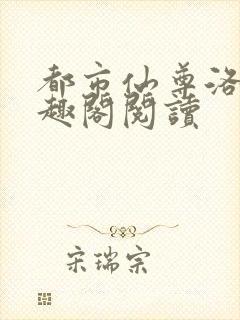 都市仙尊洛
趣阁閱讀
宋瑞宗